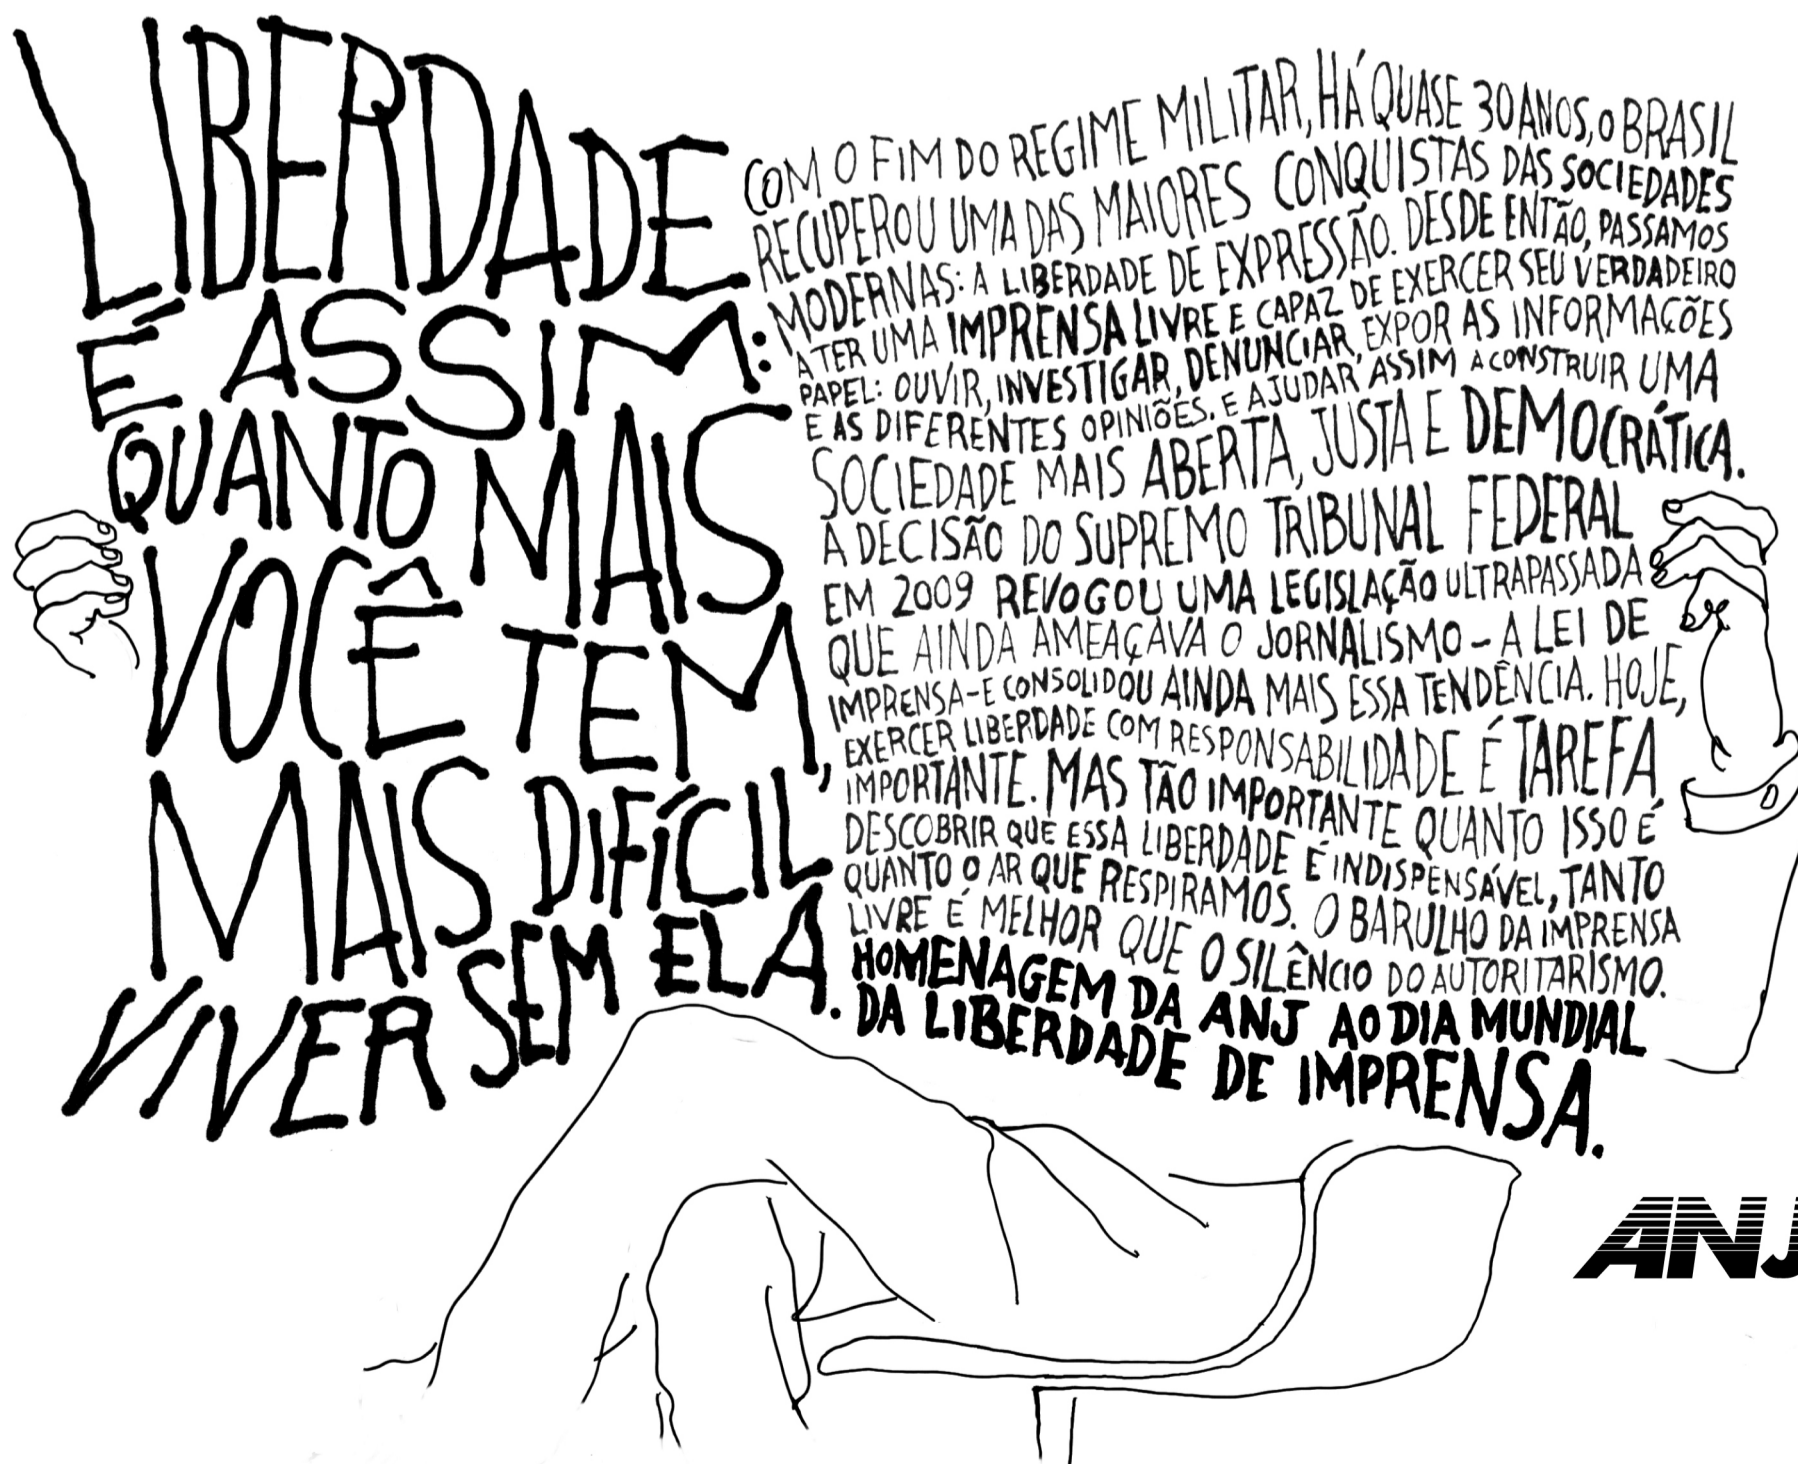 LIBERDADE
É ASSIM:
QUANTO MAIS
VOCÊ TEM,
MAIS DIFÍCIL
VIVER SEM ELA.
COM O FIM DO REGIME MILITAR, HÁ QUASE 30 ANOS, O BRASIL
RECUPEROU UMA DAS MAIORES CONQUISTAS DAS SOCIEDADES
MODERNAS: A LIBERDADE DE EXPRESSÃO. DESDE ENTÃO, PASSAMOS
A TER UMA IMPRENSA LIVRE E CAPAZ DE EXERCER SEU VERDADEIRO
PAPEL: OUVIR, INVESTIGAR, DENUNCIAR, EXPOR AS INFORMAÇÕES
E AS DIFERENTES OPINIÕES. E AJUDAR ASSIM A CONSTRUIR UMA
SOCIEDADE MAIS ABERTA, JUSTA E DEMOCRÁTICA.
A DECISÃO DO SUPREMO TRIBUNAL FEDERAL
EM 2009 REVOGOU UMA LEGISLAÇÃO ULTRAPASSADA
QUE AINDA AMEAÇAVA O JORNALISMO - A LEI DE
IMPRENSA - E CONSOLIDOU AINDA MAIS ESSA TENDÊNCIA. HOJE,
EXERCER LIBERDADE COM RESPONSABILIDADE É TAREFA
IMPORTANTE. MAS TÃO IMPORTANTE QUANTO ISSO É
DESCOBRIR QUE ESSA LIBERDADE É INDISPENSÁVEL, TANTO
QUANTO O AR QUE RESPIRAMOS. O BARULHO DA IMPRENSA
LIVRE É MELHOR QUE O SILÊNCIO DO AUTORITARISMO.
HOMENAGEM DA ANJ AO DIA MUNDIAL
DA LIBERDADE DE IMPRENSA.
ANJ